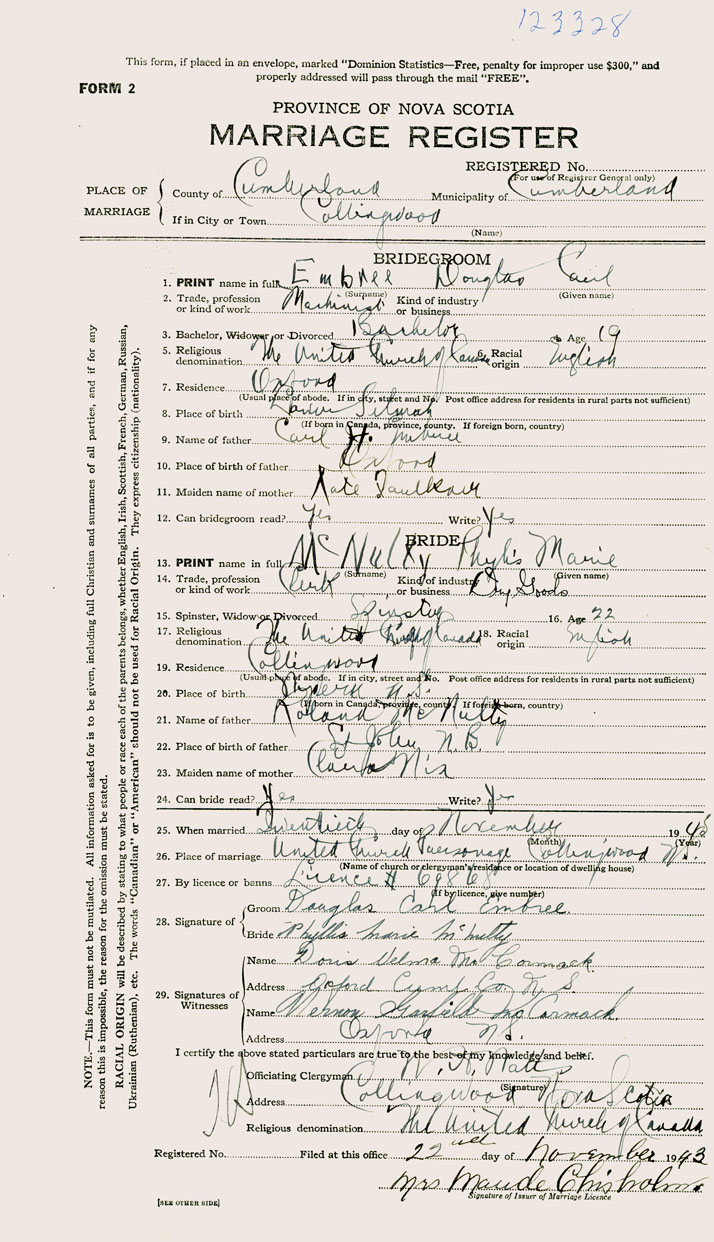 123328
This form, if placed in an envelope, marked "Dominion Statistics—Free, penalty for improper use $300," and
properly addressed will pass through the mail "FREE".
FORM 2
PROVINCE OF NOVA SCOTIA
MARRIAGE REGISTER
REGISTERED No.
(For use of Registrar General only)
PLACE OF MARRIAGE
County of Cumberland Municipality of Cumberland
If in City or Town Collingwood
(Name)
BRIDEGROOM
1. PRINT name in full Embree Douglas Carl
(Surname) (Given name)
2. Trade, profession or kind of work Machinist Kind of industry or business
3. Bachelor, Widower or Divorced Bachelor 4. Age 19
5. Religious denomination The United Church of Canada 6. Racial origin English
7. Residence Oxford
(Usual place of abode. If in city, street and No. Post office address for residents in rural parts not sufficient)
8. Place of birth
(If born in Canada, province, county. If foreign born, country)
9. Name of father Carl H. Embree
10. Place of birth of father Oxford
11. Maiden name of mother Kate Faulkner
12. Can bridegroom read? Yes Write? Yes
BRIDE
13. PRINT name in full McNulty Phylis Marie
(Surname) (Given name)
14. Trade, profession or kind of work Clerk Kind of industry or business Dry Goods
15. Spinster, Widow or Divorced Spinster 16. Age 22
17. Religious denomination The United Church of Canada 18. Racial origin English
19. Residence Collingwood
(Usual place of abode. If in city, street and No. Post office address for residents in rural parts not sufficient)
20. Place of birth N.S.
(If born in Canada, province, county. If foreign born, country)
21. Name of father Roland McNulty
22. Place of birth of father St John N.B.
23. Maiden name of mother Clara Nix
24. Can bride read? Yes Write? Yes
25. When married Twentieth day of November 194
(Month) (Year)
26. Place of marriage United Church Parsonage Collingwood N.S.
(Name of church or clergyman's residence or location of dwelling house)
27. By licence or banns Licence #
(If by licence, give number)
28. Signature of
Groom Douglas Carl Embree
Bride Phyllis Marie McNutty
29. Signatures of Witnesses
Name Doris Velma McCormack
Address Oxford Cumb. Co. N.S.
Name Vernon Garfield McCormack
Address Oxford N.S.
I certify the above stated particulars are true to the best of my knowledge and belief.
Officiating Clergyman
(Signature)
Address Collingwood Nova Scotia
Religious denomination The United Church of Canada
Registered No. Filed at this office 22nd day of November 1943
Mrs Maude Chisholm.
Signature of Issuer of Marriage Licence
[SEE OTHER SIDE]
NOTE.—This form must not be mutilated. All information asked for is to be given, including full Christian and surnames of all parties, and if for any
reason this is impossible, the reason for the omission must be stated.
RACIAL ORIGIN will be described by stating to what people or race each of the parents belongs, whether English, Irish, Scottish, French, German, Russian,
Ukrainian (Ruthenian), etc. The words "Canadian" or "American" should not be used for Racial Origin. They express citizenship (nationality).